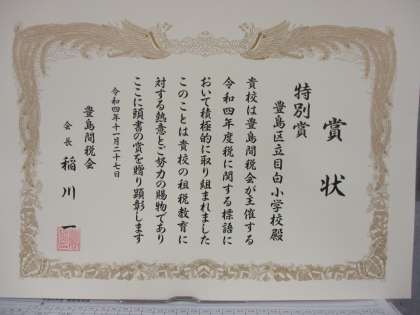 賞状
特別賞
豊島区立目白小学校殿
貴校は豊島間税会が主催する
令和四年度税に関する標語に
おいて積極的に取り組まれました
このことは貴校の租税教育に
対する熱意とご努力の賜物であり
ここに頭書の賞を贈り顕彰します
令和四年十一月二十七日
豊島間税会
会長 稲川一